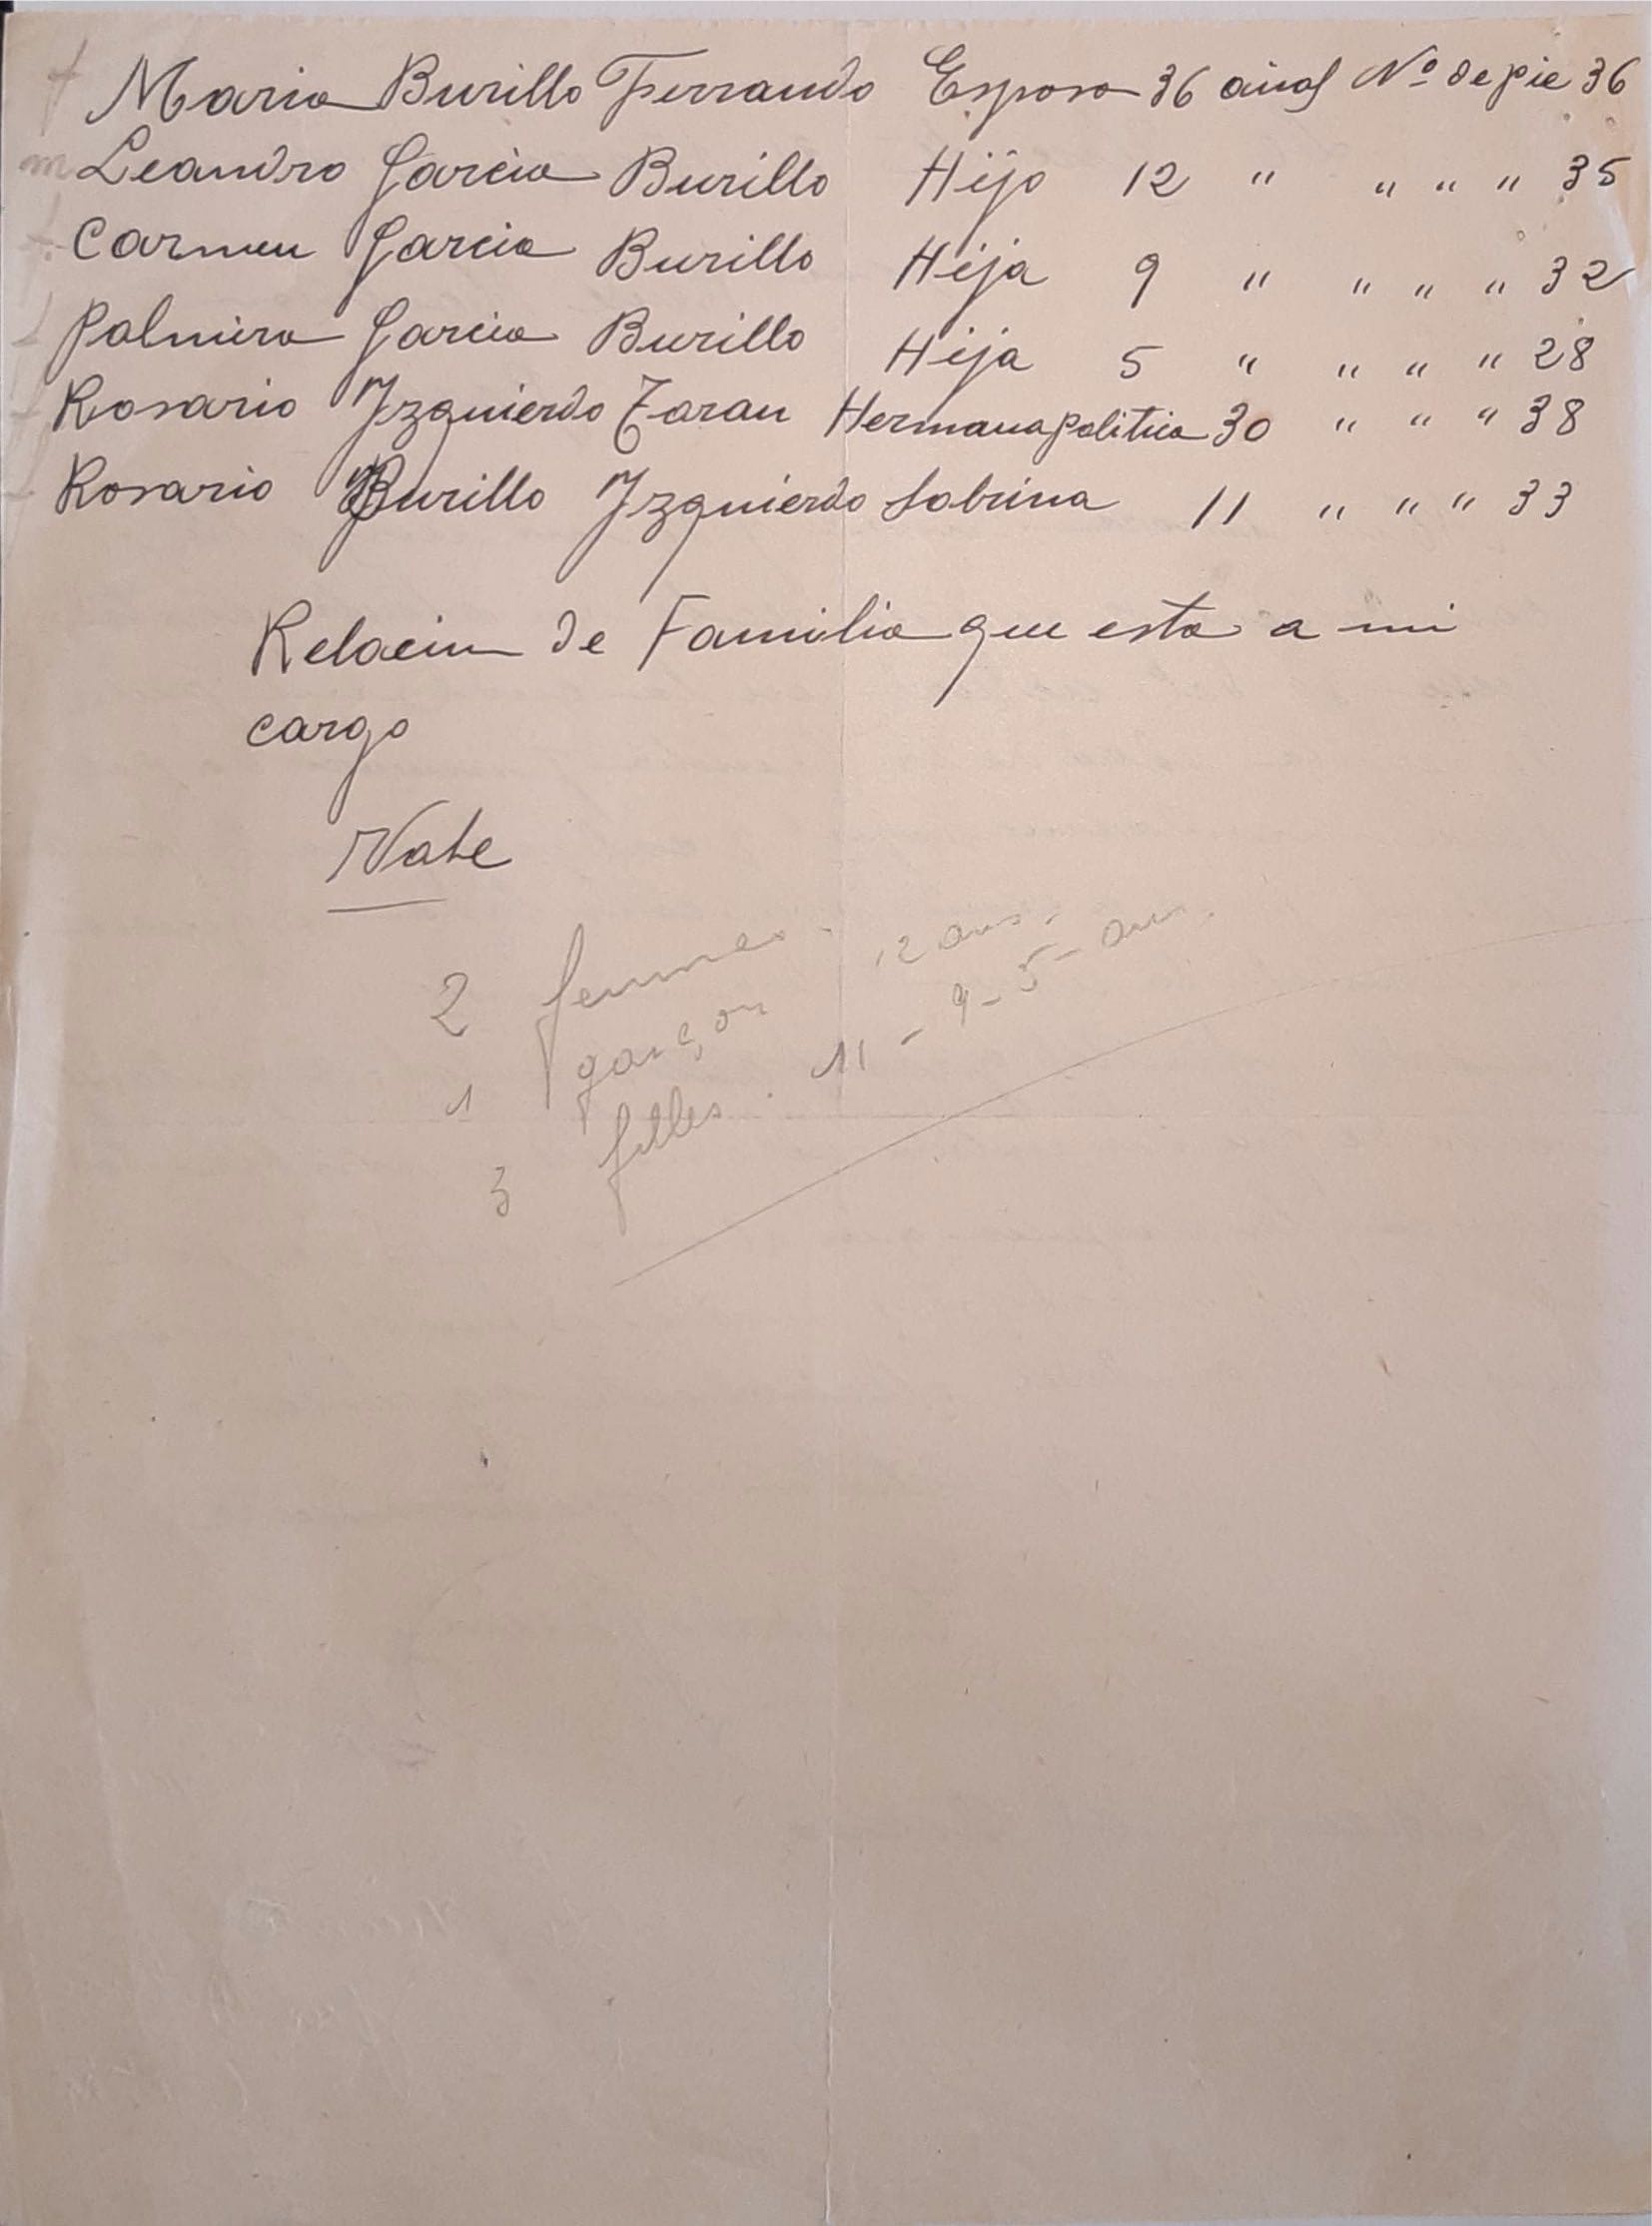 f Maria Burillo Ferrando Esposa 36 años Nº de pie 36
m Leandro Garcia Burillo Hijo 12 " " " " 35
f Carmen Garcia Burillo Hija 9 " " " " 32
f Palmira Garcia Burillo Hija 5 " " " " 28
f Rosario Izquierdo Taran Hermana politica 30 " " " 38
f Rosario Burillo Izquierdo Sobrina 11 " " " 33
Relacion de Familia que esta a mi
cargo
2 femmes.
1 garçon 12 ans.
3 filles. 11 - 9 - 5 - ans.